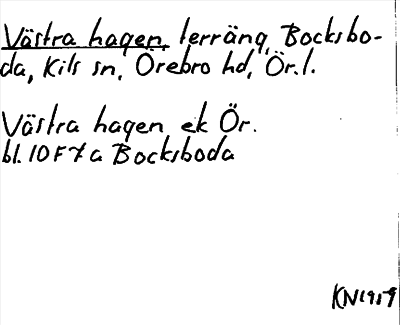 Västra hagen, terräng, Bocksbo-
da, Kils sn, Örebro hd, Ör.l.
Västra hagen ek Ör.
bl. 10 F 7 a Bocksboda
KN1959